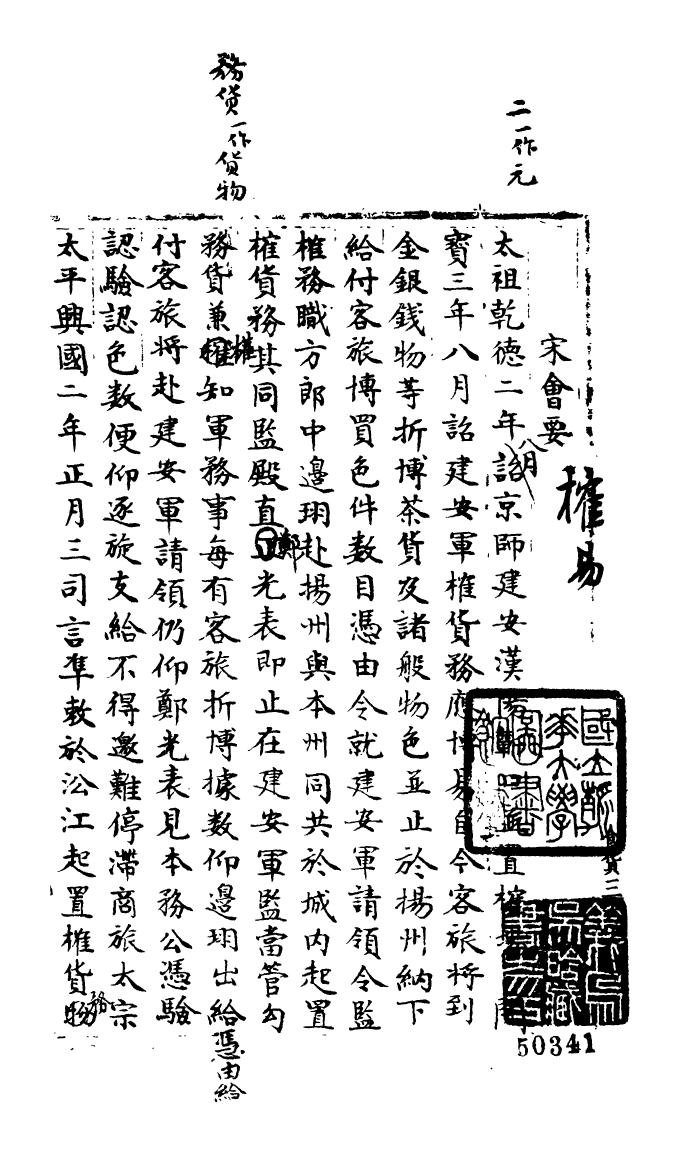 二一作元
務貨一作貨物
宋會要
榷易
太祖乾德二年八月詔京師建安漢陽 置榷 開
寶三年八月詔建安軍榷貨務應博易自今客旅將到
金銀錢物等折博茶貨及諸般物色並止於揚州納下
給付客旅博買色件數目憑由令就建安軍請領令監
榷務職方郎中邊珝赴揚州與本州同共於城內起置
榷貨務其同監殿直鄭光表即止在建安軍監當管勾
務貨兼榷知軍務事每有客旅折博據數仰邊珝出給憑由給
付客旅將赴建安軍請領仍仰鄭光表見本務公憑驗
認驗認色數便仰逐旋支給不得邀難停滯商旅太宗
太平興國二年正月三司言準敕於沿江起置榷貨務
食貨三
50341